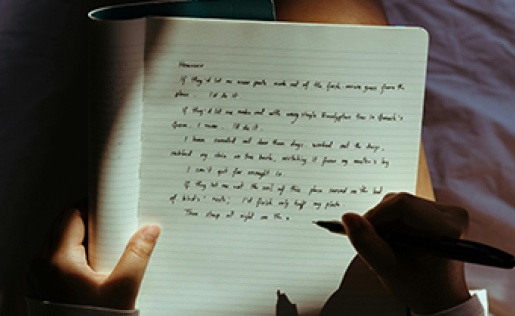 However
If they'd let me wear pants made out of the fresh grass from the
place... I'd do it
If they'd let me make out with every single Eucalyptus tree in
I swear... I'd do it.
I have counted out down these days, worked out the days,
my skin on the bark, mistaking it from my mother's leg
I can't get far enough in.
If they let me eat the soil of this place served on the bed
of birds' nests; I'd finish only half my plate.
Then sleep at night on the